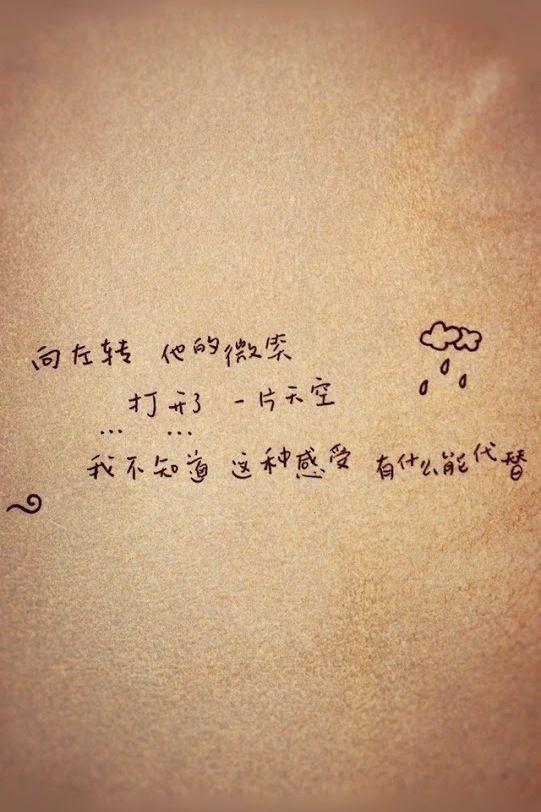 向左转 他的微笑
打开了 一片天空
... ...
我不知道 这种感受 有什么能代替